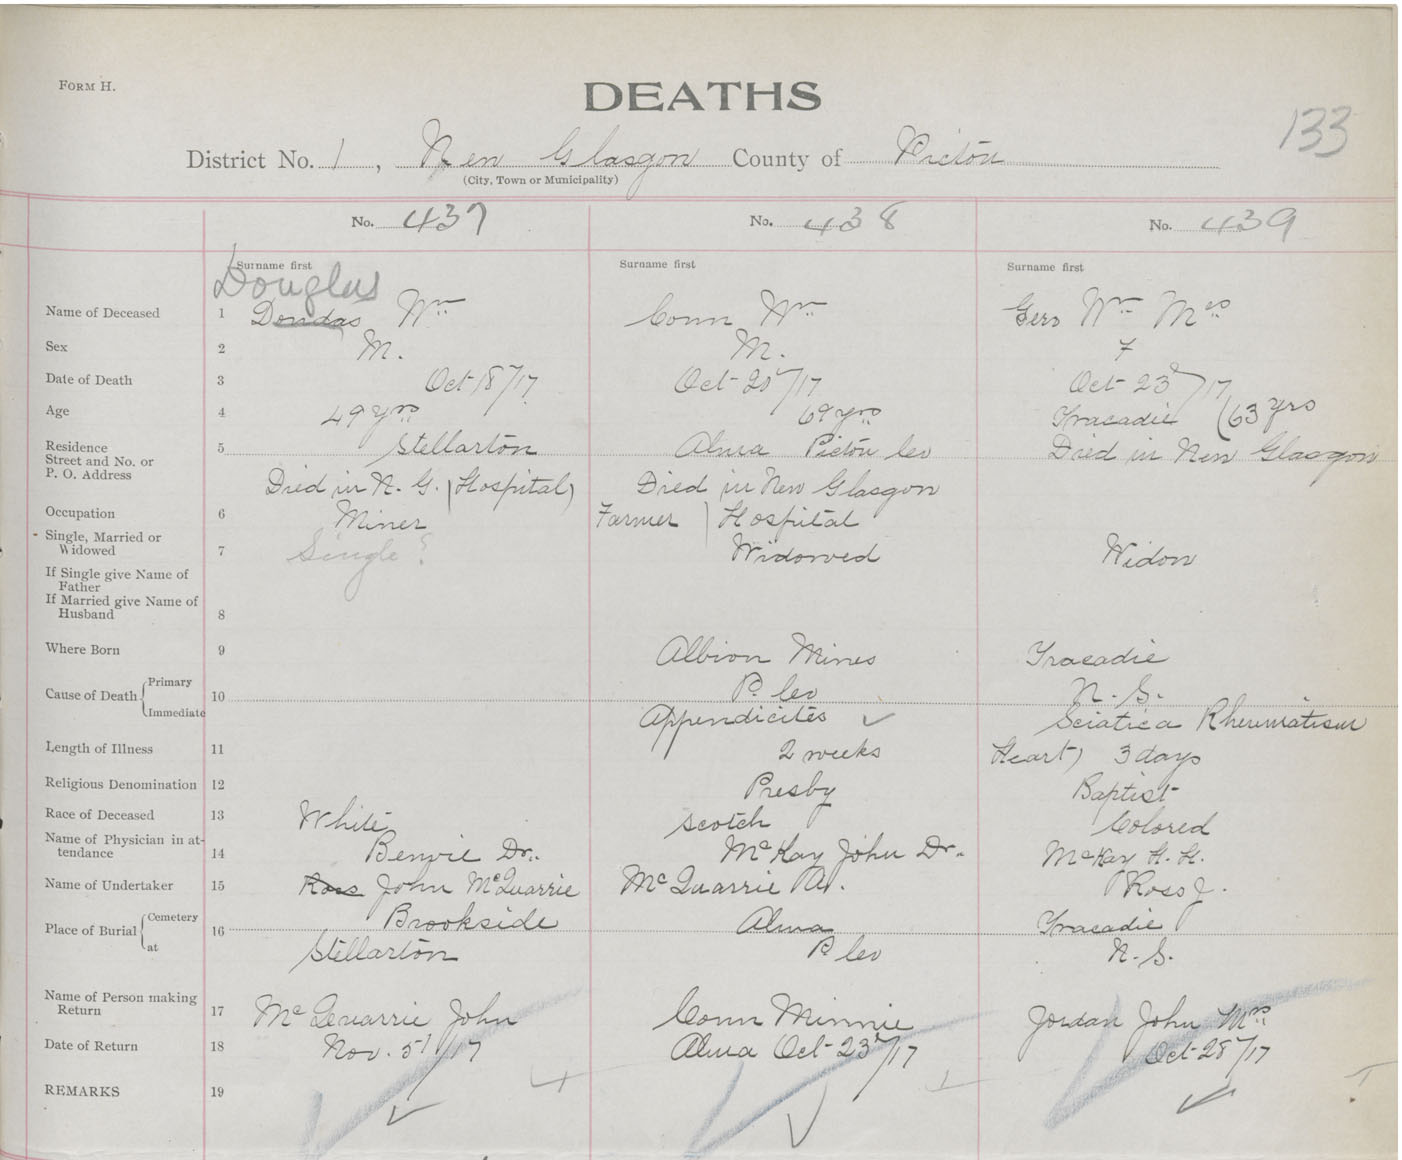 FORM H.
DEATHS
133
District No. 1, New Glasgow County of Pictou
(City, Town or Municipality)
No. 437 No. 438 No. 439
Surname first Surname first Surname first
Douglas
Name of Deceased 1 Dondas Wm Conn Wm Gero Wm Mrs
Sex 2 M. M. F
Date of Death 3 Oct 18/17 Oct 20/17 Oct 23d/17
Age 4 49 yrs 69 yrs Tracadie (63 yrs
Residence
Street and No. or
P. O. Address 5 Stellarton Alma Pictou Co Died in New Glasgow
Died in N. G. (Hospital) Died in New Glasgow
Occupation 6 Miner Farmer ) Hospital
Single, Married or
Widowed 7 Single? Widowed Widow
If Single give Name of
Father
If Married give Name of
Husband 8
Where Born 9 Albion Mines Tracadie
P. Co N. S.
Cause of Death { Primary
Immediate 10 Appendicites Sciatica Rheumatism
Length of Illness 11 2 weeks Heart) 3 days
Religious Denomination 12 Presby Baptist
Race of Deceased 13 White Scotch Colored
Name of Physician in at-
tendance 14 Benvie Dr. McKay John Dr. McKay H. H.
Name of Undertaker 15 Ross John McQuarrie McQuarrie A. Ross J.
Place of Burial { Cemetery
at 16 Brookside Alma Tracadie
Stellarton P Co N. S.
Name of Person making
Return 17 McQuarrie John Conn Minnie Jordan John Mrs
Date of Return 18 Nov. 5/17 Alma Oct 23d/17 Oct 28/17
REMARKS 19